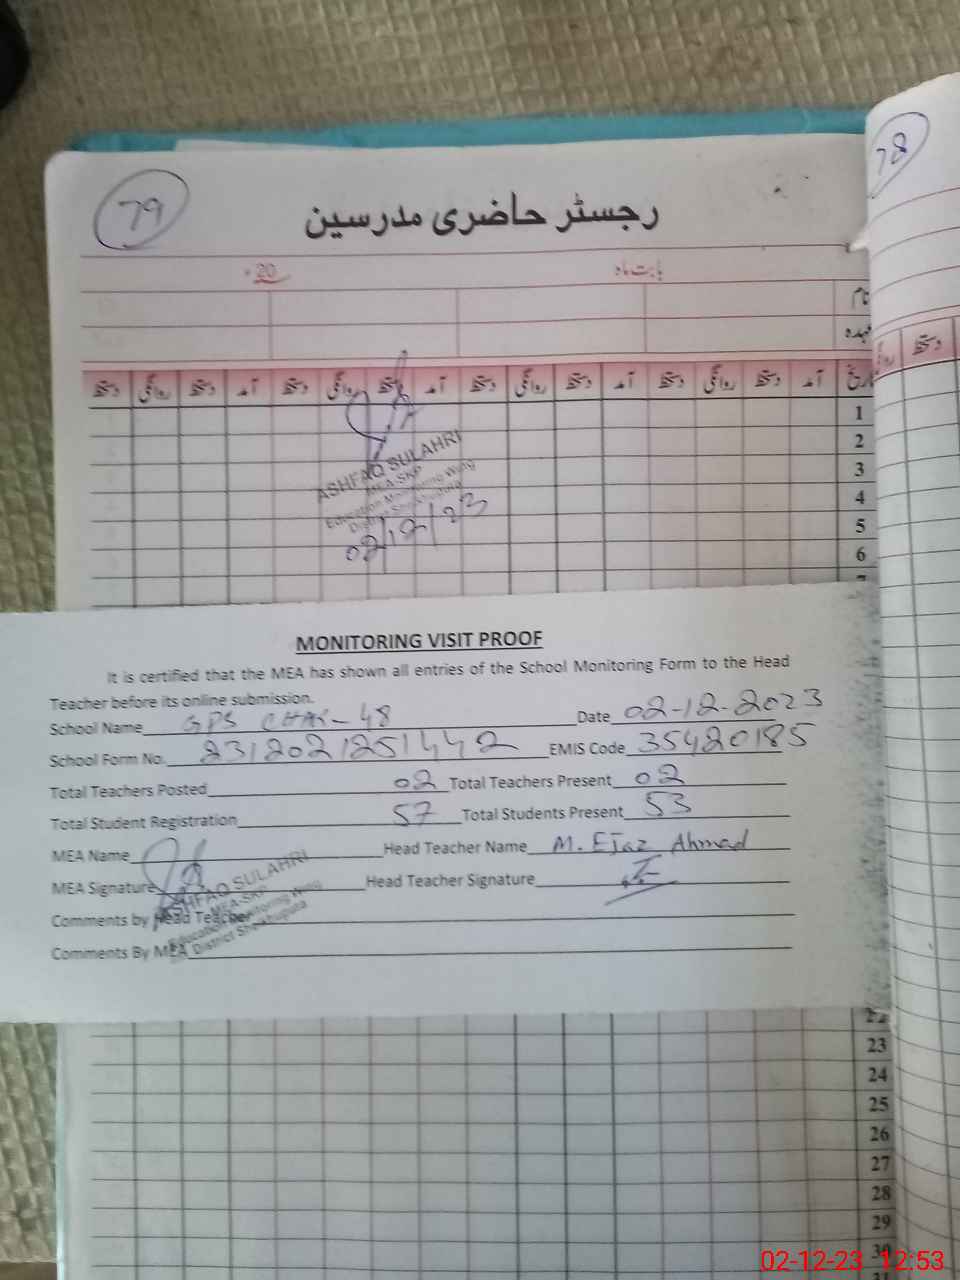 79
78
رجسٹر حاضری مدرسین
بابت ماہ 20ء
نام
عہدہ
تاریخ آمد دستخط روانگی دستخط آمد دستخط روانگی دستخط آمد دستخط روانگی دستخط آمد دستخط روانگی دستخط
دستخط
1
2
3
4
5
6
7
ASHFAQ SULAHRI
MEA-SKP
Education Monitoring Wing
District Sheikhupura
02/12/23
MONITORING VISIT PROOF
It is certified that the MEA has shown all entries of the School Monitoring Form to the Head
Teacher before its online submission.
School Name GPS CHAK-48 Date 02-12-2023
School Form No. 2312021251442 EMIS Code 35420185
Total Teachers Posted 02 Total Teachers Present 02
Total Student Registration 57 Total Students Present 53
MEA Name Head Teacher Name M. Ejaz Ahmad
MEA Signature Head Teacher Signature
Comments by Head Teacher
Comments By MEA
ASHFAQ SULAHRI
MEA-SKP
Education Monitoring Wing
District Sheikhupura
22
23
24
25
26
27
28
29
30
31
02-12-23 12:53